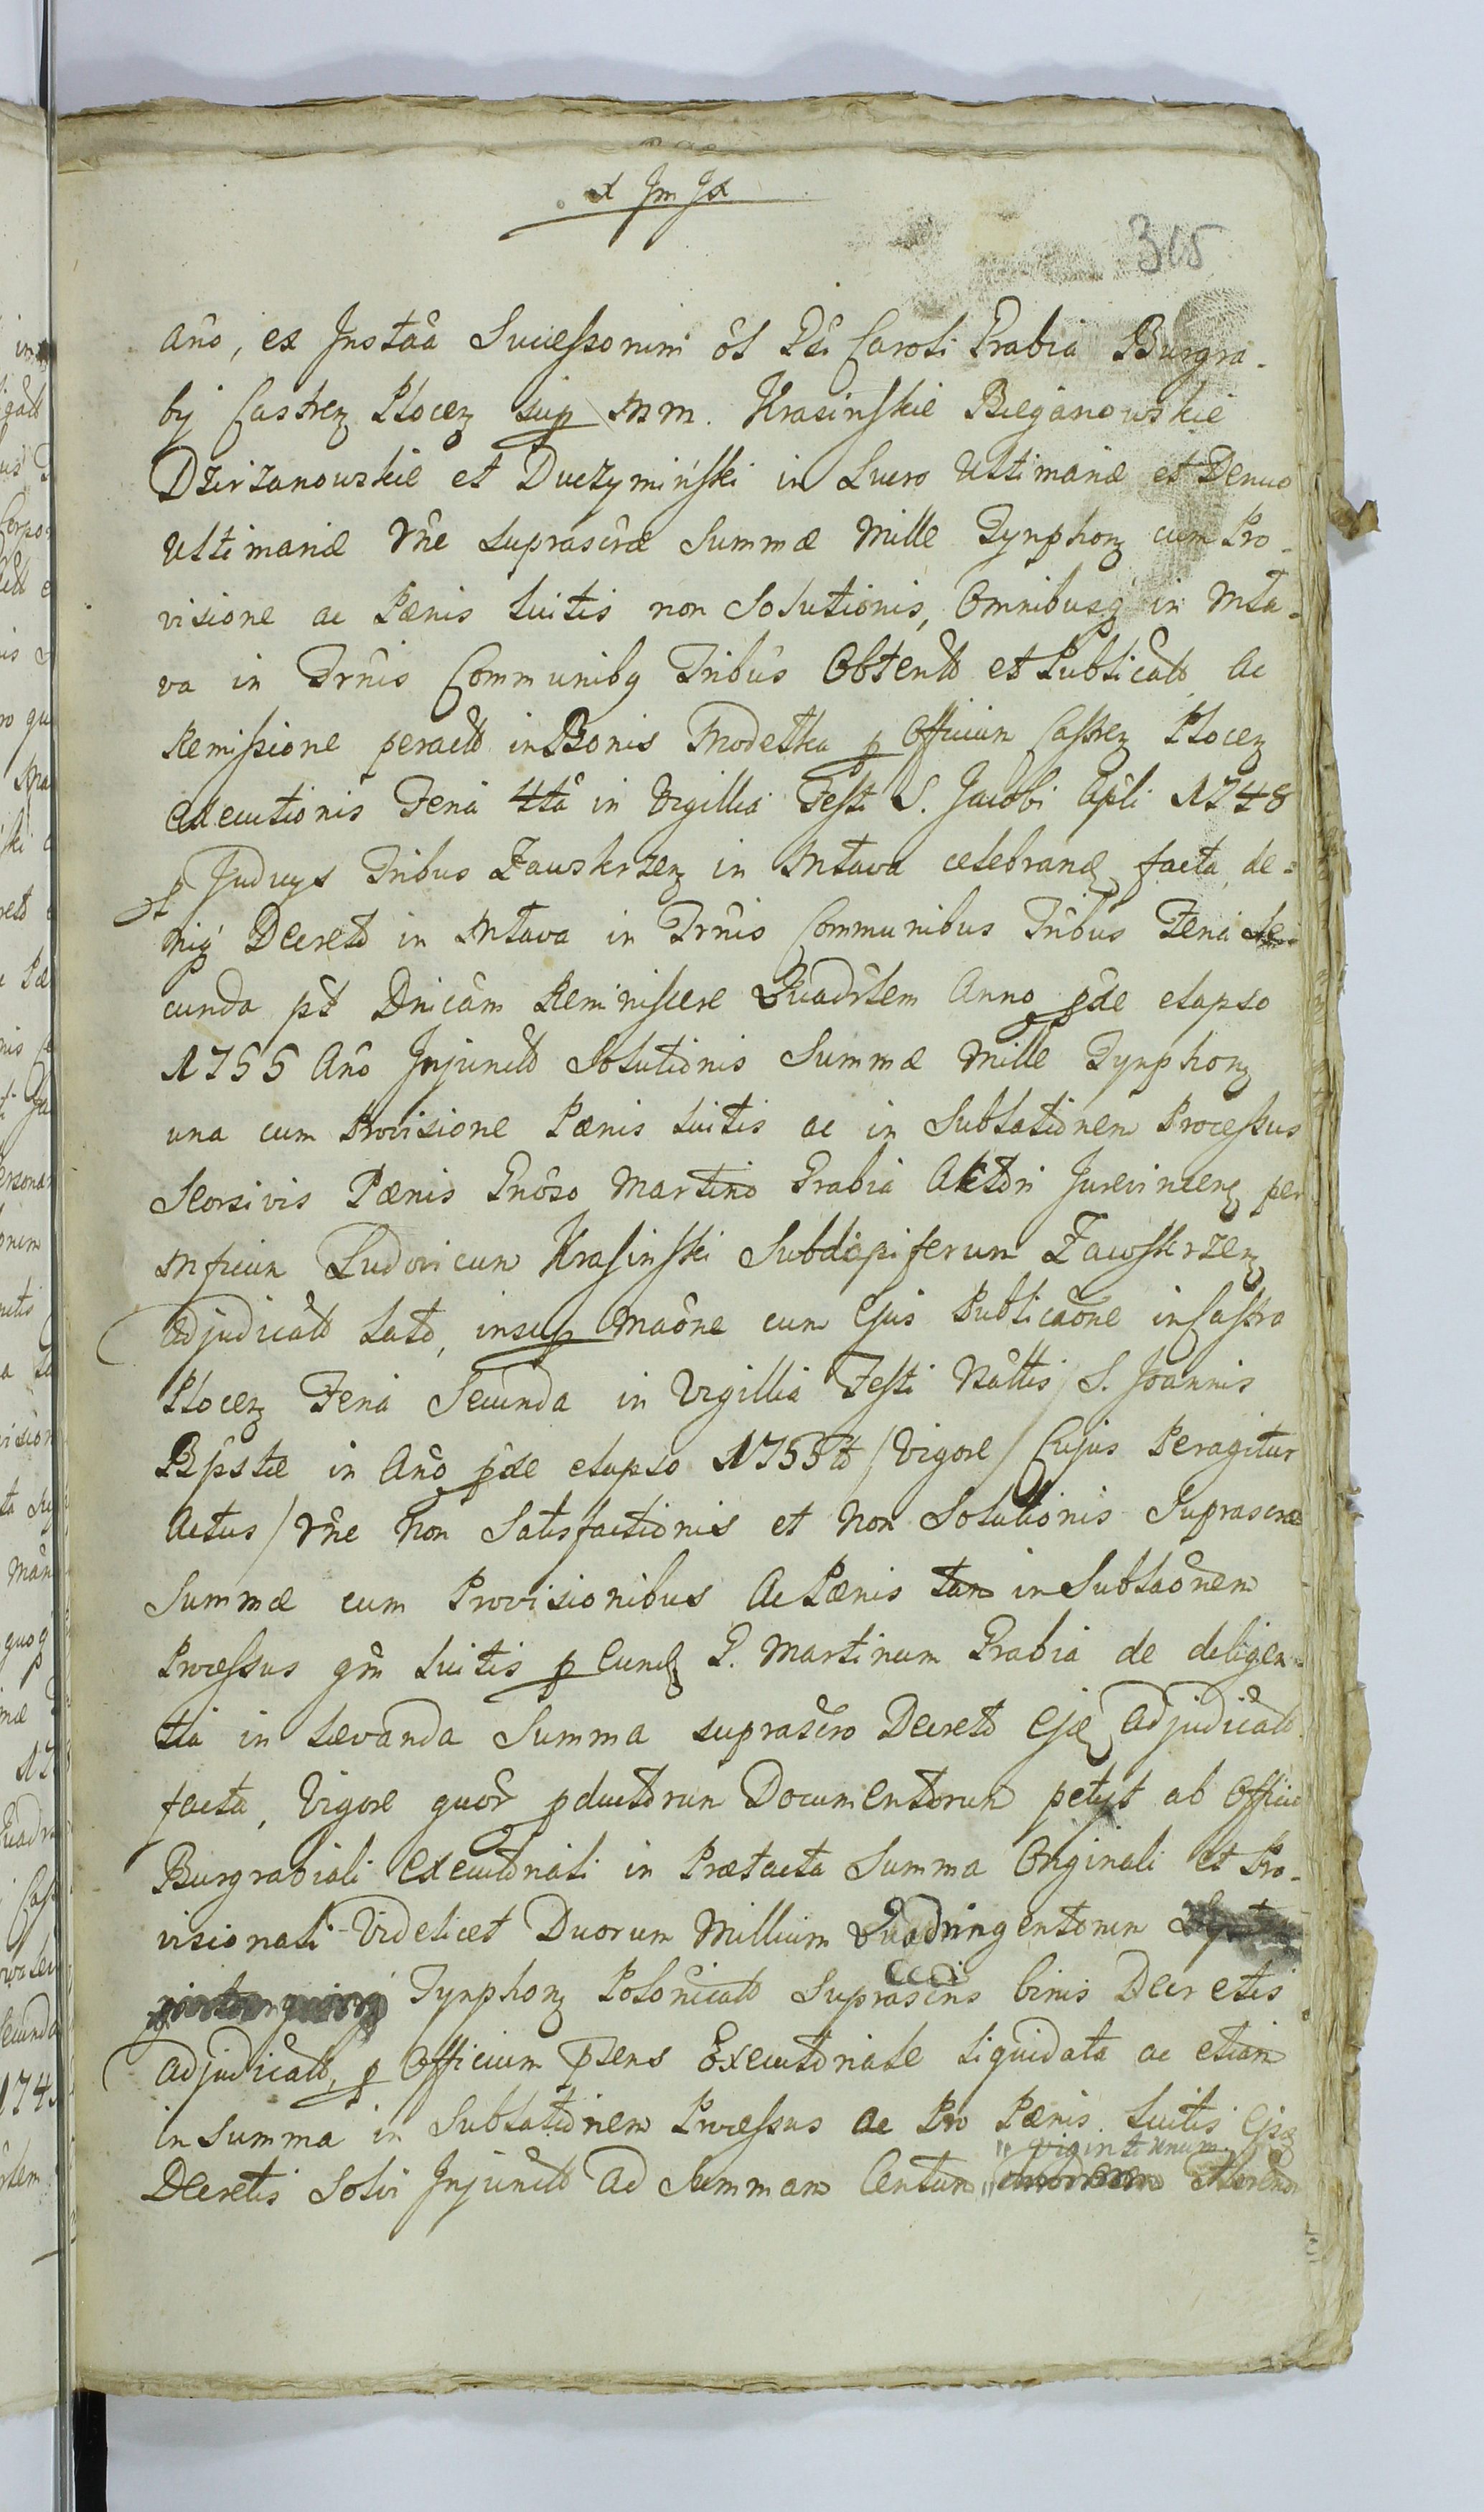 315
Año, ex Instââ Successorum ôl Pdi Caroli Prabia Burgra-
bij Castren Plocen sup MM. Krasinskie Biezanowskie
Dzirzanowskie et Duczyminski in Lucro Ultimariæ et Denuo
Ultimariæ rñe suprascræ Summæ Mille Tynphon cum Pro-
visione ac Pænis luitis non Solutionis, Omnibusq in Mla-
va in Trnis Communibq Tribus Obtento et Publicato ac
Remissione peracto in Bonis Modelka p Officium Castren Plocen
executionis Feria 4ta in Vigillia Festi S. Jacobi Apli 1748
p Judices Tribus Zawskrzen in Mlava celebran facta, de=
niq Decreto in Mlava in Trnis Communibus Tribus Feria se-
cunda pt Dnicam Reminiscere Quadrlem Anno pde elapso
1755 Año Injuncto Solutionis Summæ Mille Tynphon
una cum Provisione Pænis luitis ac in Sublationem Processus
Seorsivis Pænis Gnôso Martino Prabia Aktori Jurevincen per
Mficum Ludovicum Krasinski Subdapiferum Zawskrzen
adjudicato lato, insup Maône cum Ejus Publicaône in Castro
Plocen Feria Secunda in Vigillia Festi Natlis S. Joannis
Bpstæ in Año pde elapso 1755to /Vigore/ Cujus Peragitur
Actus / rñe Non Satisfactionis et Non Solutionis Suprascræ
Summæ cum Provisionibus Ac Pænis tam in Sublaônem
Processus qm luitis p Eund P. Martinum Prabia de diligen-
tia in levanda Summa suprascro Decreto Ejd Adjudicato
facta, Vigore quor pductorum Documentorum petyt ab Officio
Burgrabiali Executoriali in Prætacta Summa Originali et Pro-
visionali Videlicet Duorum Millium Quadringentorum
Tynphon Polonicalo Suprascris binis Decretis
adjudicato, p Officium Psens Executoriale liquidata ac etiam
in Summa in Sublationem Processus ac Pro Pænis luitis Ejsd
vigint unum
Decretis Solvi Injuncto ad Summam Centum Floreno